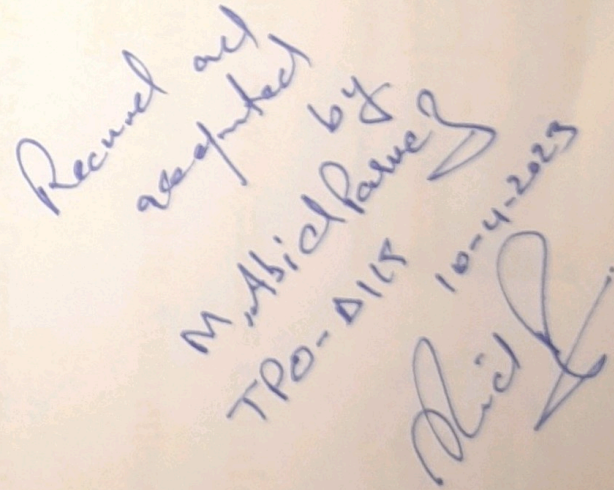 Received and
accepted
by
M. Abid Parvez
TPO-DILT
10-4-2023
Abid P